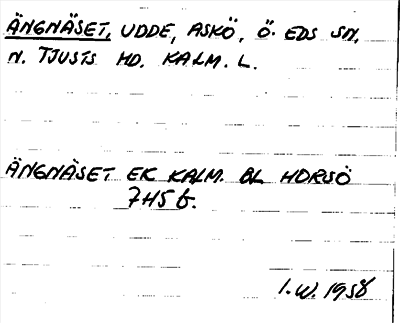 ÄNGNÄSET, UDDE, ASKÖ, Ö. EDS SN,
N. TJUSTS HD. KALM. L.
ÄNGNÄSET EK KALM. BL HORSÖ
7H5 b.
I.W. 1958